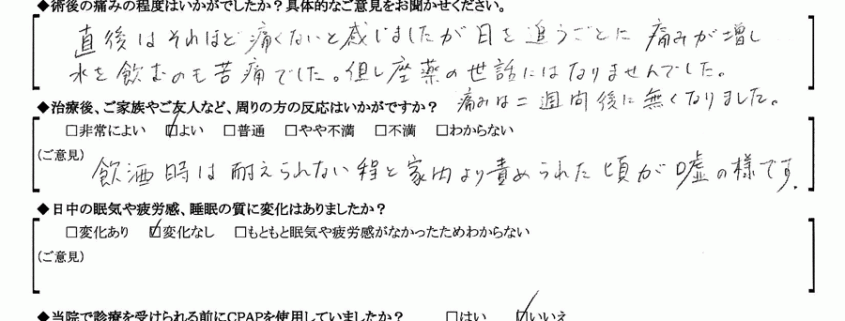 ◆術後の痛みの程度はいかがでしたか？具体的なご意見をお聞かせください。
直後はそれほど痛くないと感じましたが日を追うごとに痛みが増し
水を飲むのも苦痛でした。但し座薬の世話にはなりませんでした。
痛みは二週間後に無くなりました。
◆治療後、ご家族やご友人など、周りの方の反応はいかがですか？
□非常によい ☑よい □普通 □やや不満 □不満 □わからない
(ご意見)
飲酒時は耐えられない程と家内より責められた頃が嘘の様です.
◆日中の眠気や疲労感、睡眠の質に変化はありましたか？
□変化あり ☑変化なし □もともと眠気や疲労感がなかったためわからない
(ご意見)
◆当院で診療を受けられる前にCPAPを使用していましたか？ □はい ☑いいえ